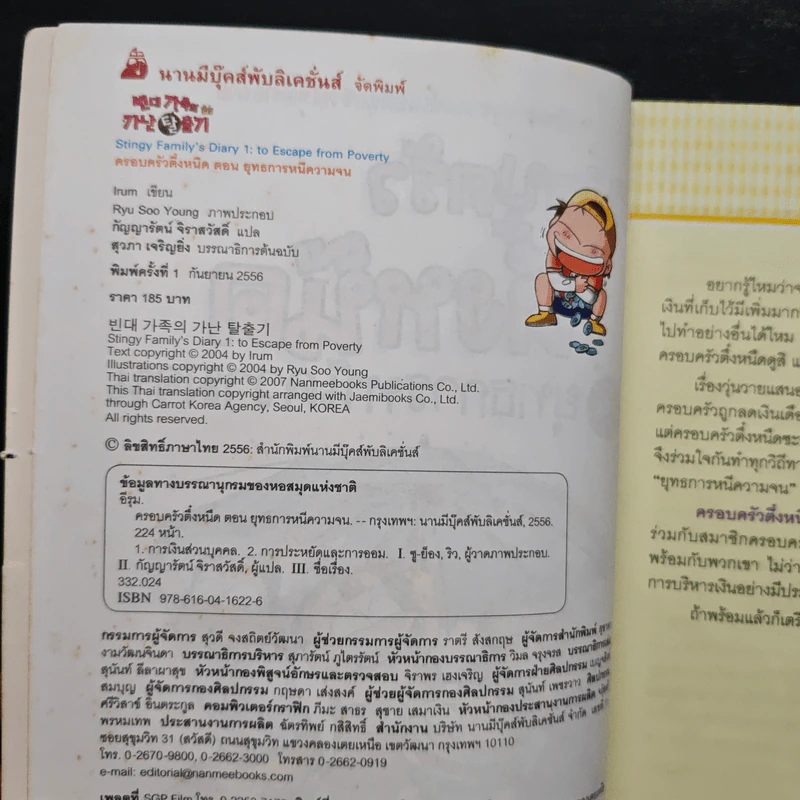 นานมีบุ๊คส์พับลิเคชั่นส์ จัดพิมพ์
빈대 가족의
가난 탈출기
Stingy Family's Diary 1: to Escape from Poverty
ครอบครัวตึ๋งหนืด ตอน ยุทธการหนีความจน
Irum เขียน
Ryu Soo Young ภาพประกอบ
กัญญารัตน์ จิราสวัสดิ์ แปล
สุวภา เจริญยิ่ง บรรณาธิการต้นฉบับ
พิมพ์ครั้งที่ 1 กันยายน 2556
ราคา 185 บาท
빈대 가족의 가난 탈출기
Stingy Family's Diary 1: to Escape from Poverty
Text copyright © 2004 by Irum
Illustrations copyright © 2004 by Ryu Soo Young
Thai translation copyright © 2007 Nanmeebooks Publications Co., Ltd.
This Thai translation copyright arranged with Jaemibooks Co., Ltd.
through Carrot Korea Agency, Seoul, KOREA
All rights reserved.
© ลิขสิทธิ์ภาษาไทย 2556: สำนักพิมพ์นานมีบุ๊คส์พับลิเคชั่นส์
ข้อมูลทางบรรณานุกรมของหอสมุดแห่งชาติ
อีรุม.
ครอบครัวตึ๋งหนืด ตอน ยุทธการหนีความจน. -- กรุงเทพฯ: นานมีบุ๊คส์พับลิเคชั่นส์, 2556.
224 หน้า.
1. การเงินส่วนบุคคล. 2. การประหยัดและการออม. I. ซู-ย็อง, ริว, ผู้วาดภาพประกอบ.
II. กัญญารัตน์ จิราสวัสดิ์, ผู้แปล. III. ชื่อเรื่อง.
332.024
ISBN 978-616-04-1622-6
กรรมการผู้จัดการ สุวดี จงสถิตย์วัฒนา ผู้ช่วยกรรมการผู้จัดการ ราตรี สังสกฤษ ผู้จัดการสำนักพิมพ์
งามวัฒนจินดา บรรณาธิการบริหาร สุภารัตน์ ภูไตรรัตน์ หัวหน้ากองบรรณาธิการ วิมล จรุงจรส
สุนันท์ ลีลาผาสุข หัวหน้ากองพิสูจน์อักษรและตรวจสอบ จิราพร เฮงเจริญ ผู้จัดการฝ่ายศิลปกรรม
สมบุญ ผู้จัดการกองศิลปกรรม กฤษดา เส่งสงค์ ผู้ช่วยผู้จัดการกองศิลปกรรม สุนันท์ เพชรวาว
ศรีวิสาร์ อินตระกูล คอมพิวเตอร์กราฟิก ภีมะ สาธร สุชาย เสมาเงิน หัวหน้ากองประสานงานการผลิต
พรหมเทพ ประสานงานการผลิต ฉัตรทิพย์ กสิสิทธิ์ สำนักงาน บริษัท นานมีบุ๊คส์พับลิเคชั่นส์ จำกัด
ซอยสุขุมวิท 31 (สวัสดี) ถนนสุขุมวิท แขวงคลองเตยเหนือ เขตวัฒนา กรุงเทพฯ 10110
โทร. 0-2670-9800, 0-2662-3000 โทรสาร 0-2662-0919
e-mail: editorial@nanmeebooks.com
เพลตที่ SGP Film โทร.
อยากรู้ไหมว่า
เงินที่เก็บไว้มีเพิ่มมาก
ไปทำอย่างอื่นได้ไหม
ครอบครัวตึ๋งหนืดดูสิ
เรื่องวุ่นวายแสน
ครอบครัวถูกลดเงินเดือ
แต่ครอบครัวตึ๋งหนืด
จึงร่วมใจกันทำทุกวิถีทา
“ยุทธการหนีความจน”
ครอบครัวตึ๋งหนื
ร่วมกับสมาชิกครอบคร
พร้อมกับพวกเขา ไม่ว่า
การบริหารเงินอย่างมีปร
ถ้าพร้อมแล้วก็เตรี